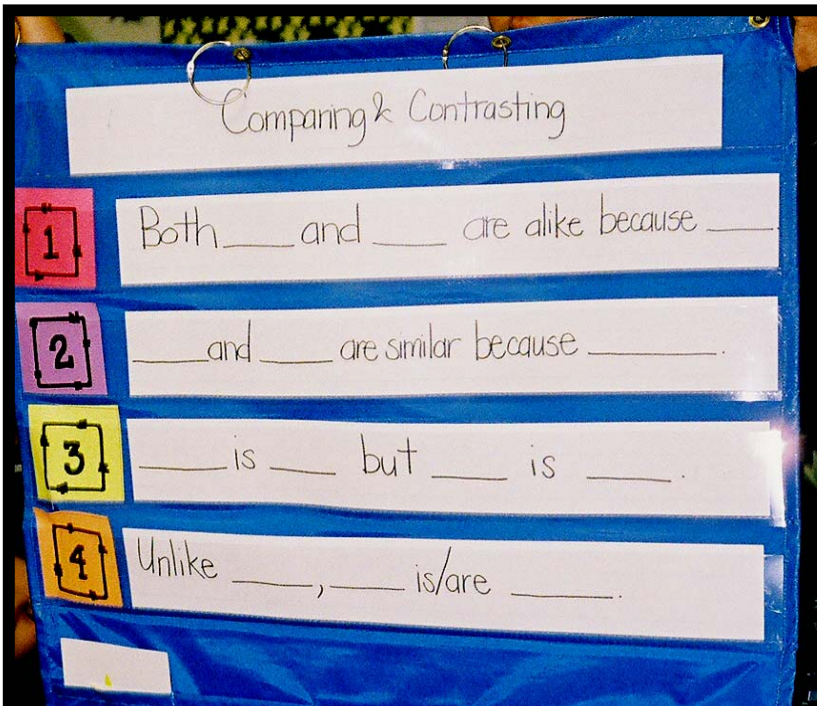 Comparing & Contrasting
1 Both____and____ are alike because____
2 ____and____ are similar because______.
3 ____is____ but____ is ____.
4 Unlike ____,____ is/are _____.